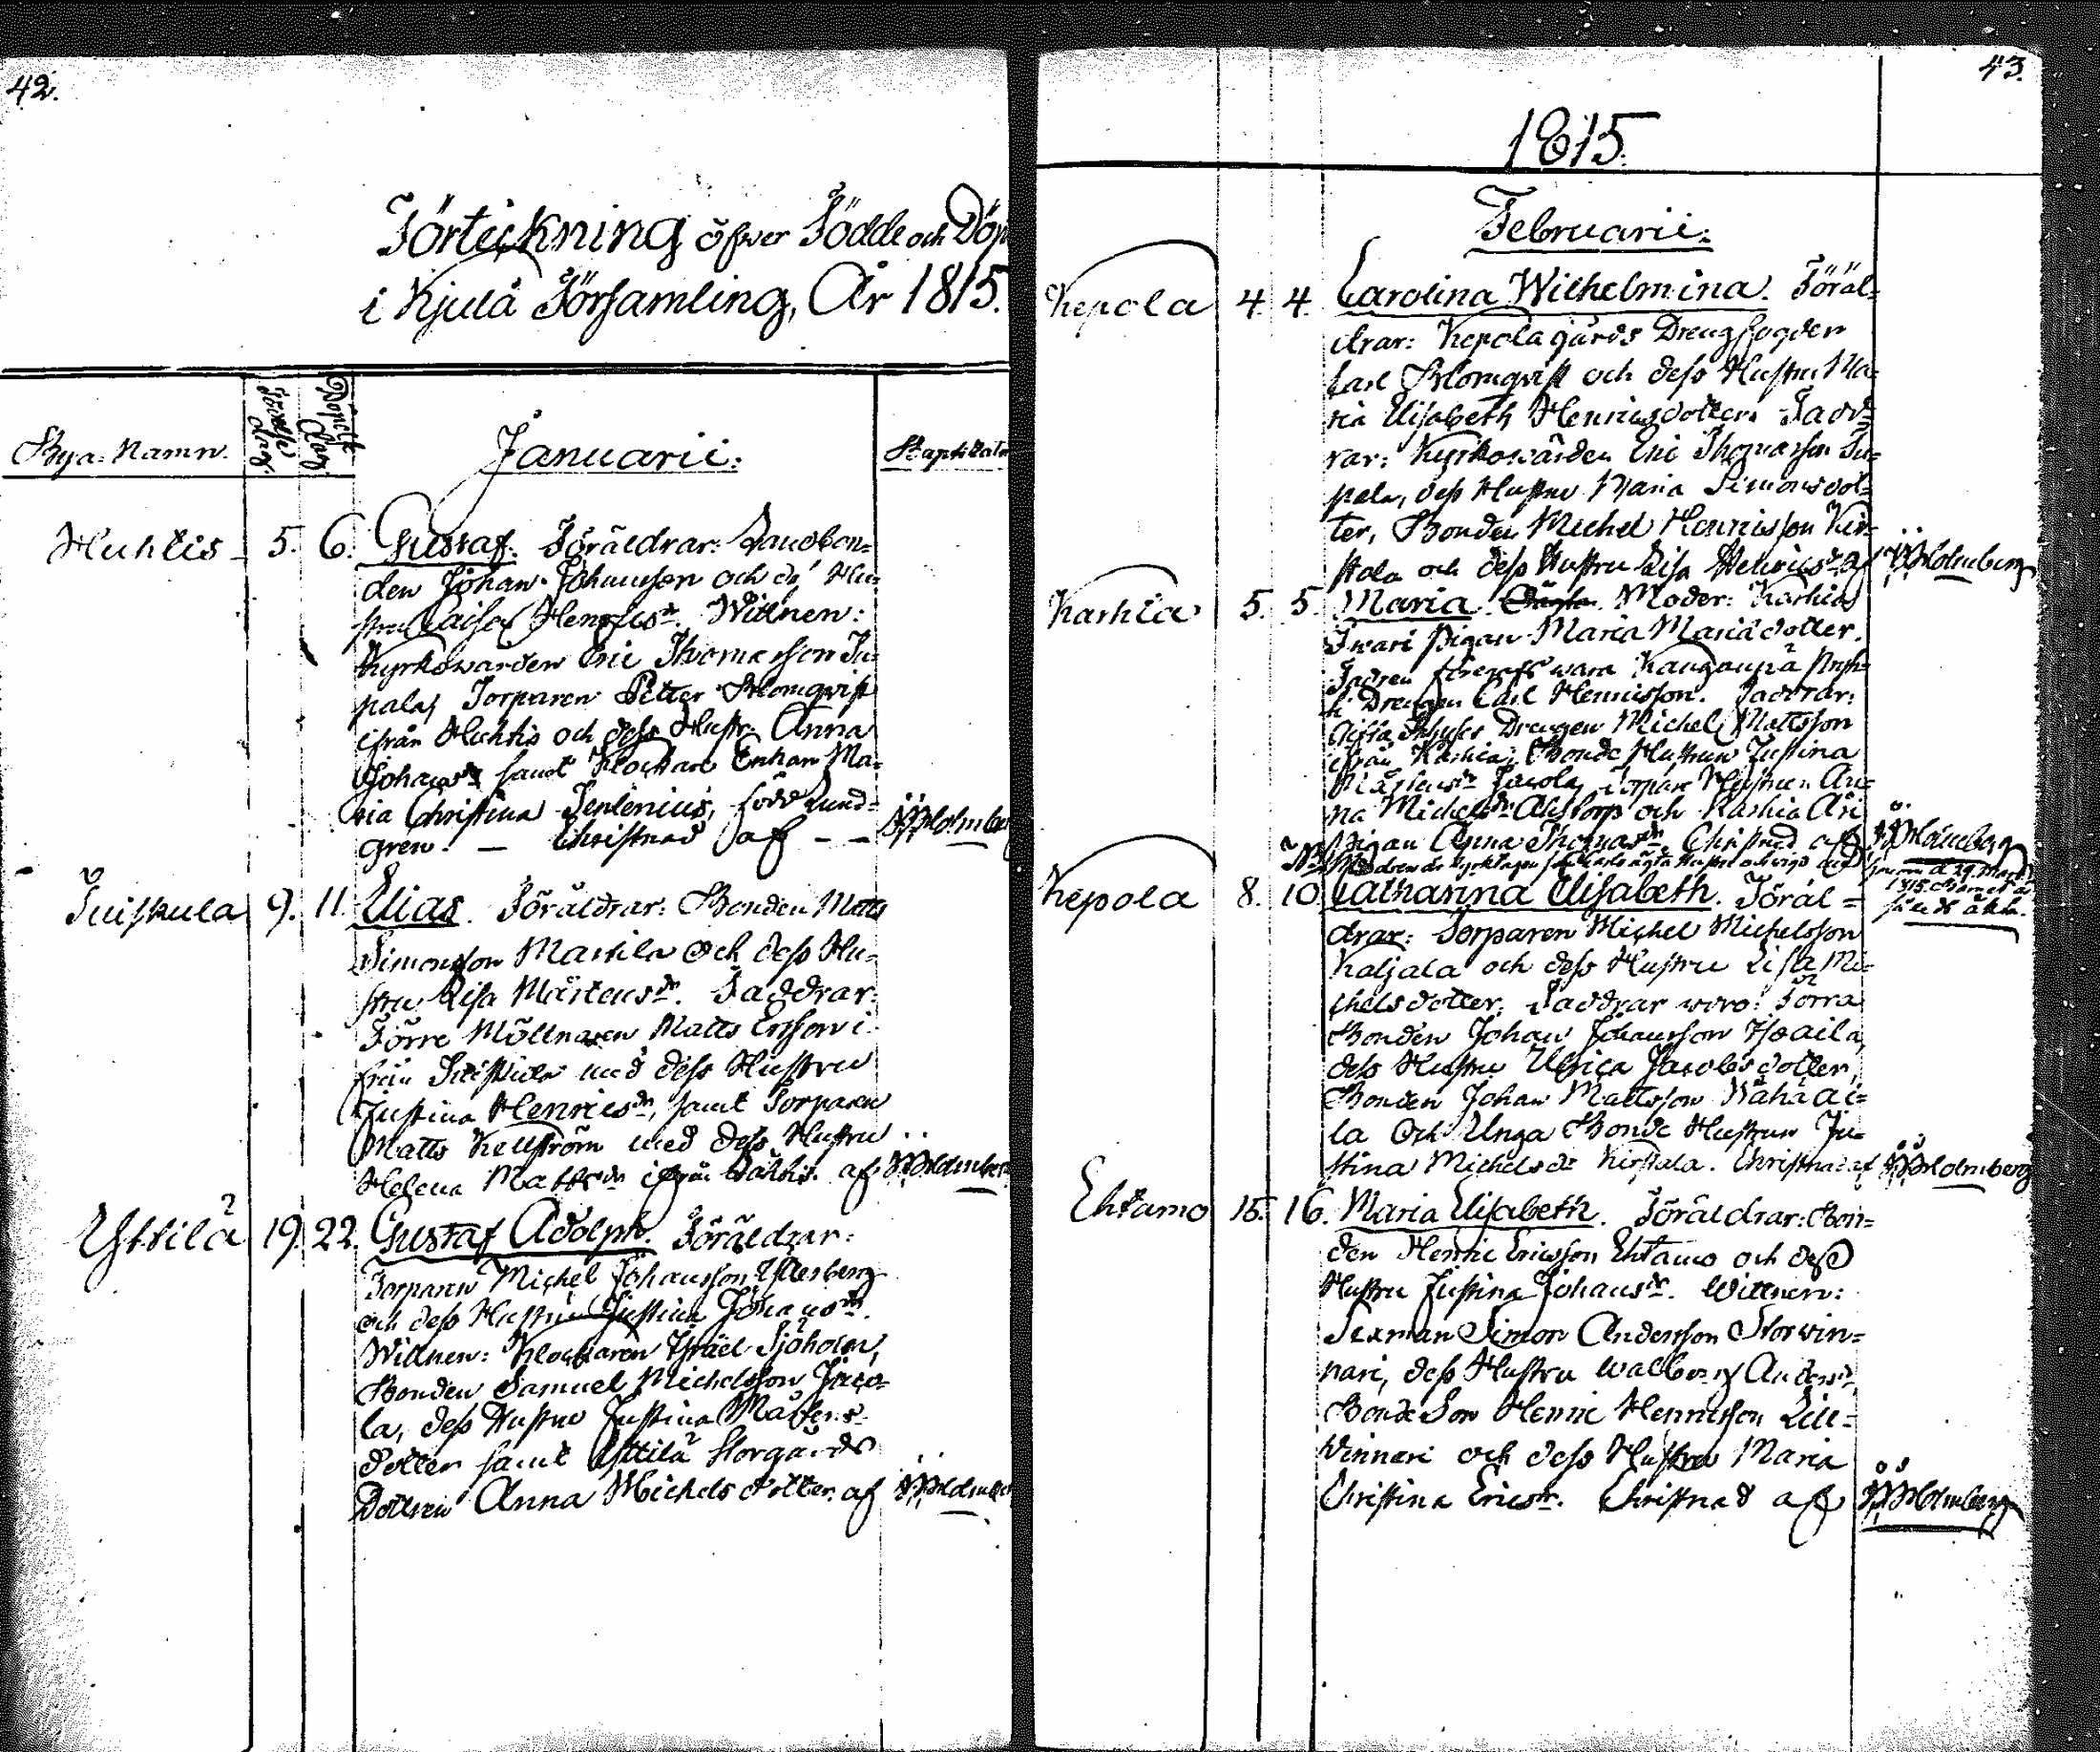 42.
Förteckning öfver Födde och Döp
i Kjulå Församling, År 1815.
Bya-Namn.
Födelse Dag
Döpelse Dag
Januarii:
Huhtis 5. 6. Gustaf. Föräldrar: Landbon=
den Johan Johansson och ds Hu=
stru Caisa Henricsdr. Wittnen:
Kyrkowärden Eric Thomasson Ju=
pala, Torparen Petter Blomqvist
ifrån Huhtis och dess Hustr. Anna
Johansdr samt Klockare Enkan Ma=
ria Christina Tenlenius, född Lund=
gren. — Christnad af — — Holmber
Suiskula 9. 11. Elias. Föräldrar: Bonden Matts
Simonsson Markila och dess Hu=
stru Lisa Mårtensdr. Faddrar:
Förre Möllnaren Matts Ericsson i
från Suiskula med dess Hustru
Justina Henricsdr, samt Torparen
Matts Kellström med dess Hustru
Helena Mattsdr ifrån af Holmber
Yttilä 19. 22. Gustaf Adolph. Föräldrar:
Torparen Michel Johansson Österberg
och dess Hustru Justina Johansdr.
Wittnen: Klockaren Israel Sjöholm,
Bonden Samuel Michelsson Jaco=
la, dess Hustru Justina Mårtens=
dotter samt Yttilä Storgårds
Dottren Anna Michelsdotter. af Holmber
43.
1815.
Februarii:
Kepola 4. 4. Carolina Wilhelmina. Föräl=
drar: Kepola gårds Drengfogden
Carl Blomqvist och dess Hustru Ma=
ria Elisabeth Henricsdotter. Fadd=
rar: Kyrkowärden Eric Thomasson Ju=
pala, dess Hustru Maria Simonsdot=
ter, Bonden Michel Henricsson Kir=
stola och dess Hustru Lisa Henricsdr. af Holmberg
Karhia 5. 5. Maria. Moder: Karhia
Iwari Pigan Maria Mariädotter.
Fadren föregafs wara
Drengen Carl Henricsson. Faddrar:
Drengen Michel Mattsson
ifrån Karhia, Bonde Hustrun Justina
Mårtensdr Jacola, Torpare Hustrun An=
na Michelsdr Ahlstorp och Karhia Äri
Pigan Anna Thomasdr. Christnad af Holmberg
Kepola 8. 10. Catharina Elisabeth. Föräl=
drar: Torparen Michel Michelsson
Kaljala och dess Hustru Lisa Mi=
chelsdotter. Faddrar woro: Förra
Bonden Johan Johansson Isoaila,
dess Hustru Ulrica Jacobsdotter,
Bonden Johan Mattsson Wähä Ai=
la Och Unga Bonde Hustrun Ju=
stina Michelsdr Kirstala. Christnad af Holmberg
Ehtamo 15. 16. Maria Elisabeth. Föräldrar: Bon=
den Henric Ericsson Ehtamo och dess
Hustru Justina Johansdr. Wittnen:
Sexman Simon Andersson Storwin=
nari, dess Hustru Walborg Andersdr,
Bonde Son Henric Henricsson Lill=
winnari och dess Hustru Maria
Christina Ericsdr. Christnad af Holmberg